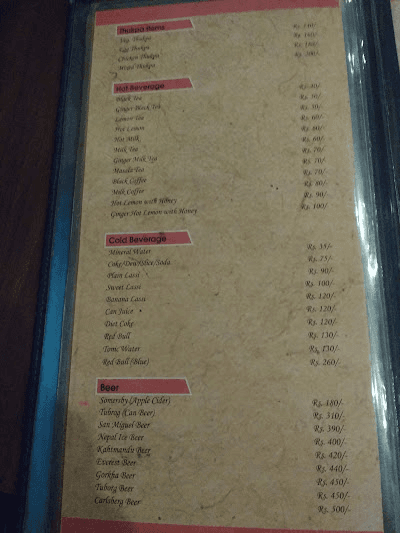 Thukpa Items
Veg. Thukpa Rs. 140/-
Egg Thukpa Rs. 160/-
Chicken Thukpa Rs. 180/-
Mixed Thukpa Rs. 200/-
Hot Beverage
Black Tea Rs. 40/-
Ginger Black Tea Rs. 50/-
Lemon Tea Rs. 50/-
Hot Lemon Rs. 60/-
Hot Milk Rs. 60/-
Milk Tea Rs. 60/-
Ginger Milk Tea Rs. 70/-
Masala Tea Rs. 70/-
Black Coffee Rs. 70/-
Milk Coffee Rs. 80/-
Hot Lemon with Honey Rs. 90/-
Ginger Hot Lemon with Honey Rs. 100/-
Cold Beverage
Mineral Water Rs. 35/-
Coke/Dew/Slice/Soda Rs. 25/-
Plain Lassi Rs. 90/-
Sweet Lassi Rs. 100/-
Banana Lassi Rs. 120/-
Can Juice Rs. 120/-
Diet Coke Rs. 120/-
Red Bull Rs. 130/-
Tonic Water Rs. 130/-
Red Bull (Blue) Rs. 260/-
Beer
Somersby (Apple Cider) Rs. 180/-
Tuborg (Can Beer) Rs. 310/-
San Miguel Beer Rs. 390/-
Nepal Ice Beer Rs. 400/-
Kathmandu Beer Rs. 420/-
Everest Beer Rs. 440/-
Gorkha Beer Rs. 450/-
Tuborg Beer Rs. 450/-
Carlsberg Beer Rs. 500/-